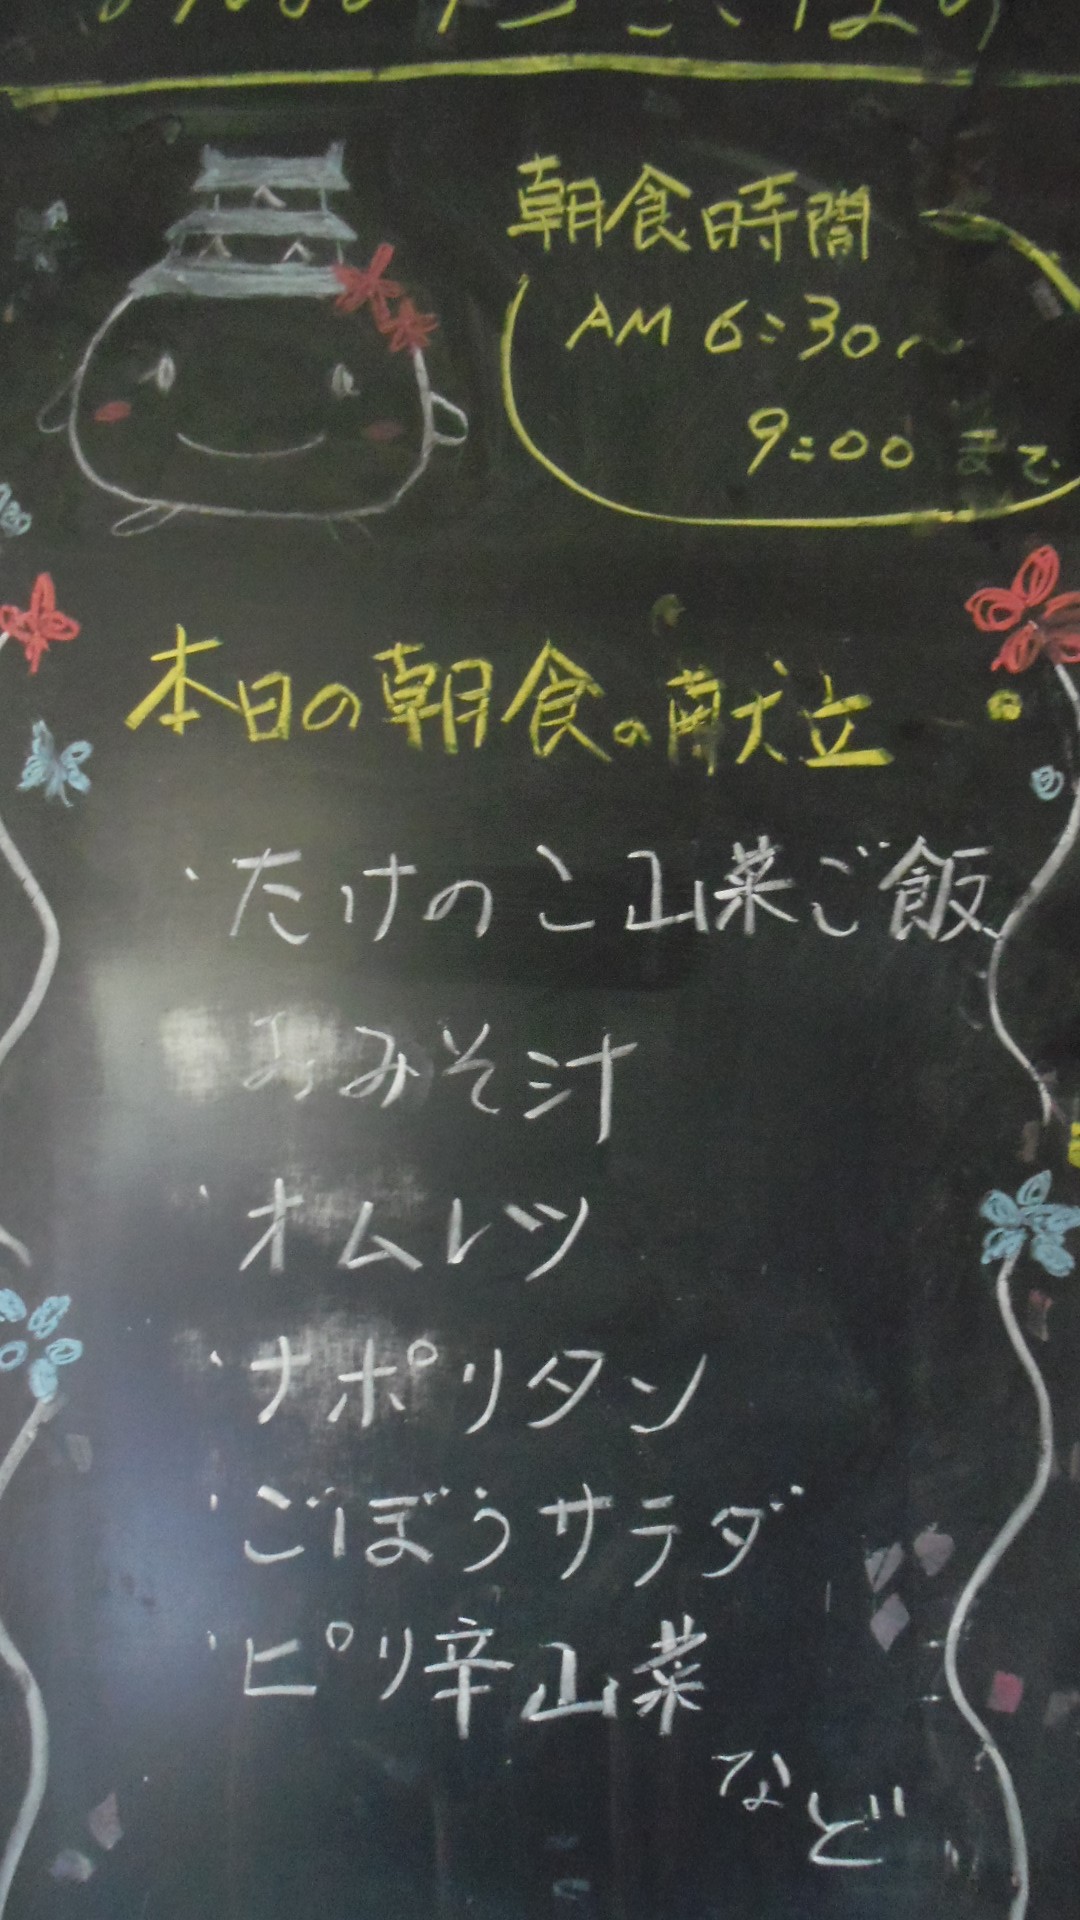 朝食時間
AM 6:30〜
9:00 まで
本日の朝食の献立
・たけのこ山菜ご飯
おみそ汁
・オムレツ
・ナポリタン
・ごぼうサラダ
・ピリ辛山菜
など